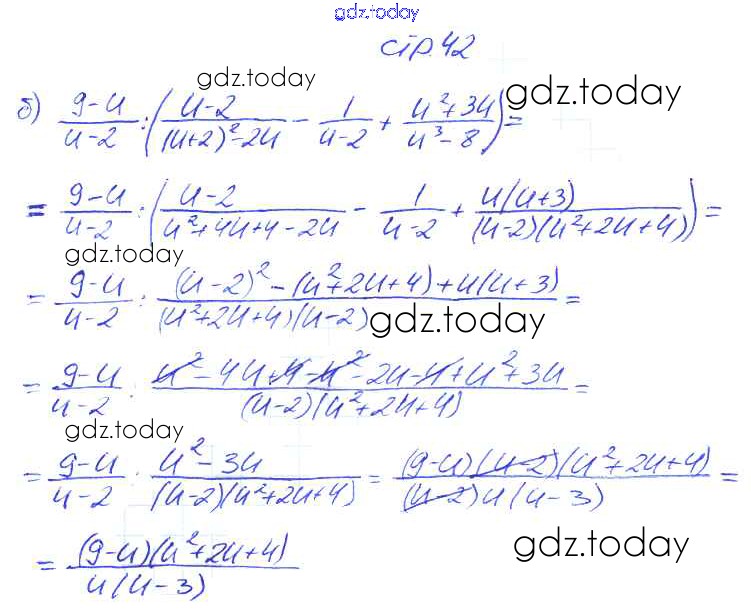 gdz.today
стр. 42
gdz.today
б) (9-u)/(u-2) : ((u-2)/((u+2)²-2u) - 1/(u-2) + (u²+3u)/(u³-8)) =
gdz.today
= (9-u)/(u-2) : ((u-2)/(u²+4u+4-2u) - 1/(u-2) + u(u+3)/((u-2)(u²+2u+4))) =
gdz.today
= (9-u)/(u-2) : ((u-2)²-(u²+2u+4)+u(u+3))/((u²+2u+4)(u-2)) =
gdz.today
= (9-u)/(u-2) : (u²-4u+4-u²-2u-4+u²+3u)/((u-2)(u²+2u+4)) =
gdz.today
= (9-u)/(u-2) : (u²-3u)/((u-2)(u²+2u+4)) = (9-u)(u-2)(u²+2u+4)/((u-2)u(u-3)) =
= (9-u)(u²+2u+4)/(u(u-3))
gdz.today